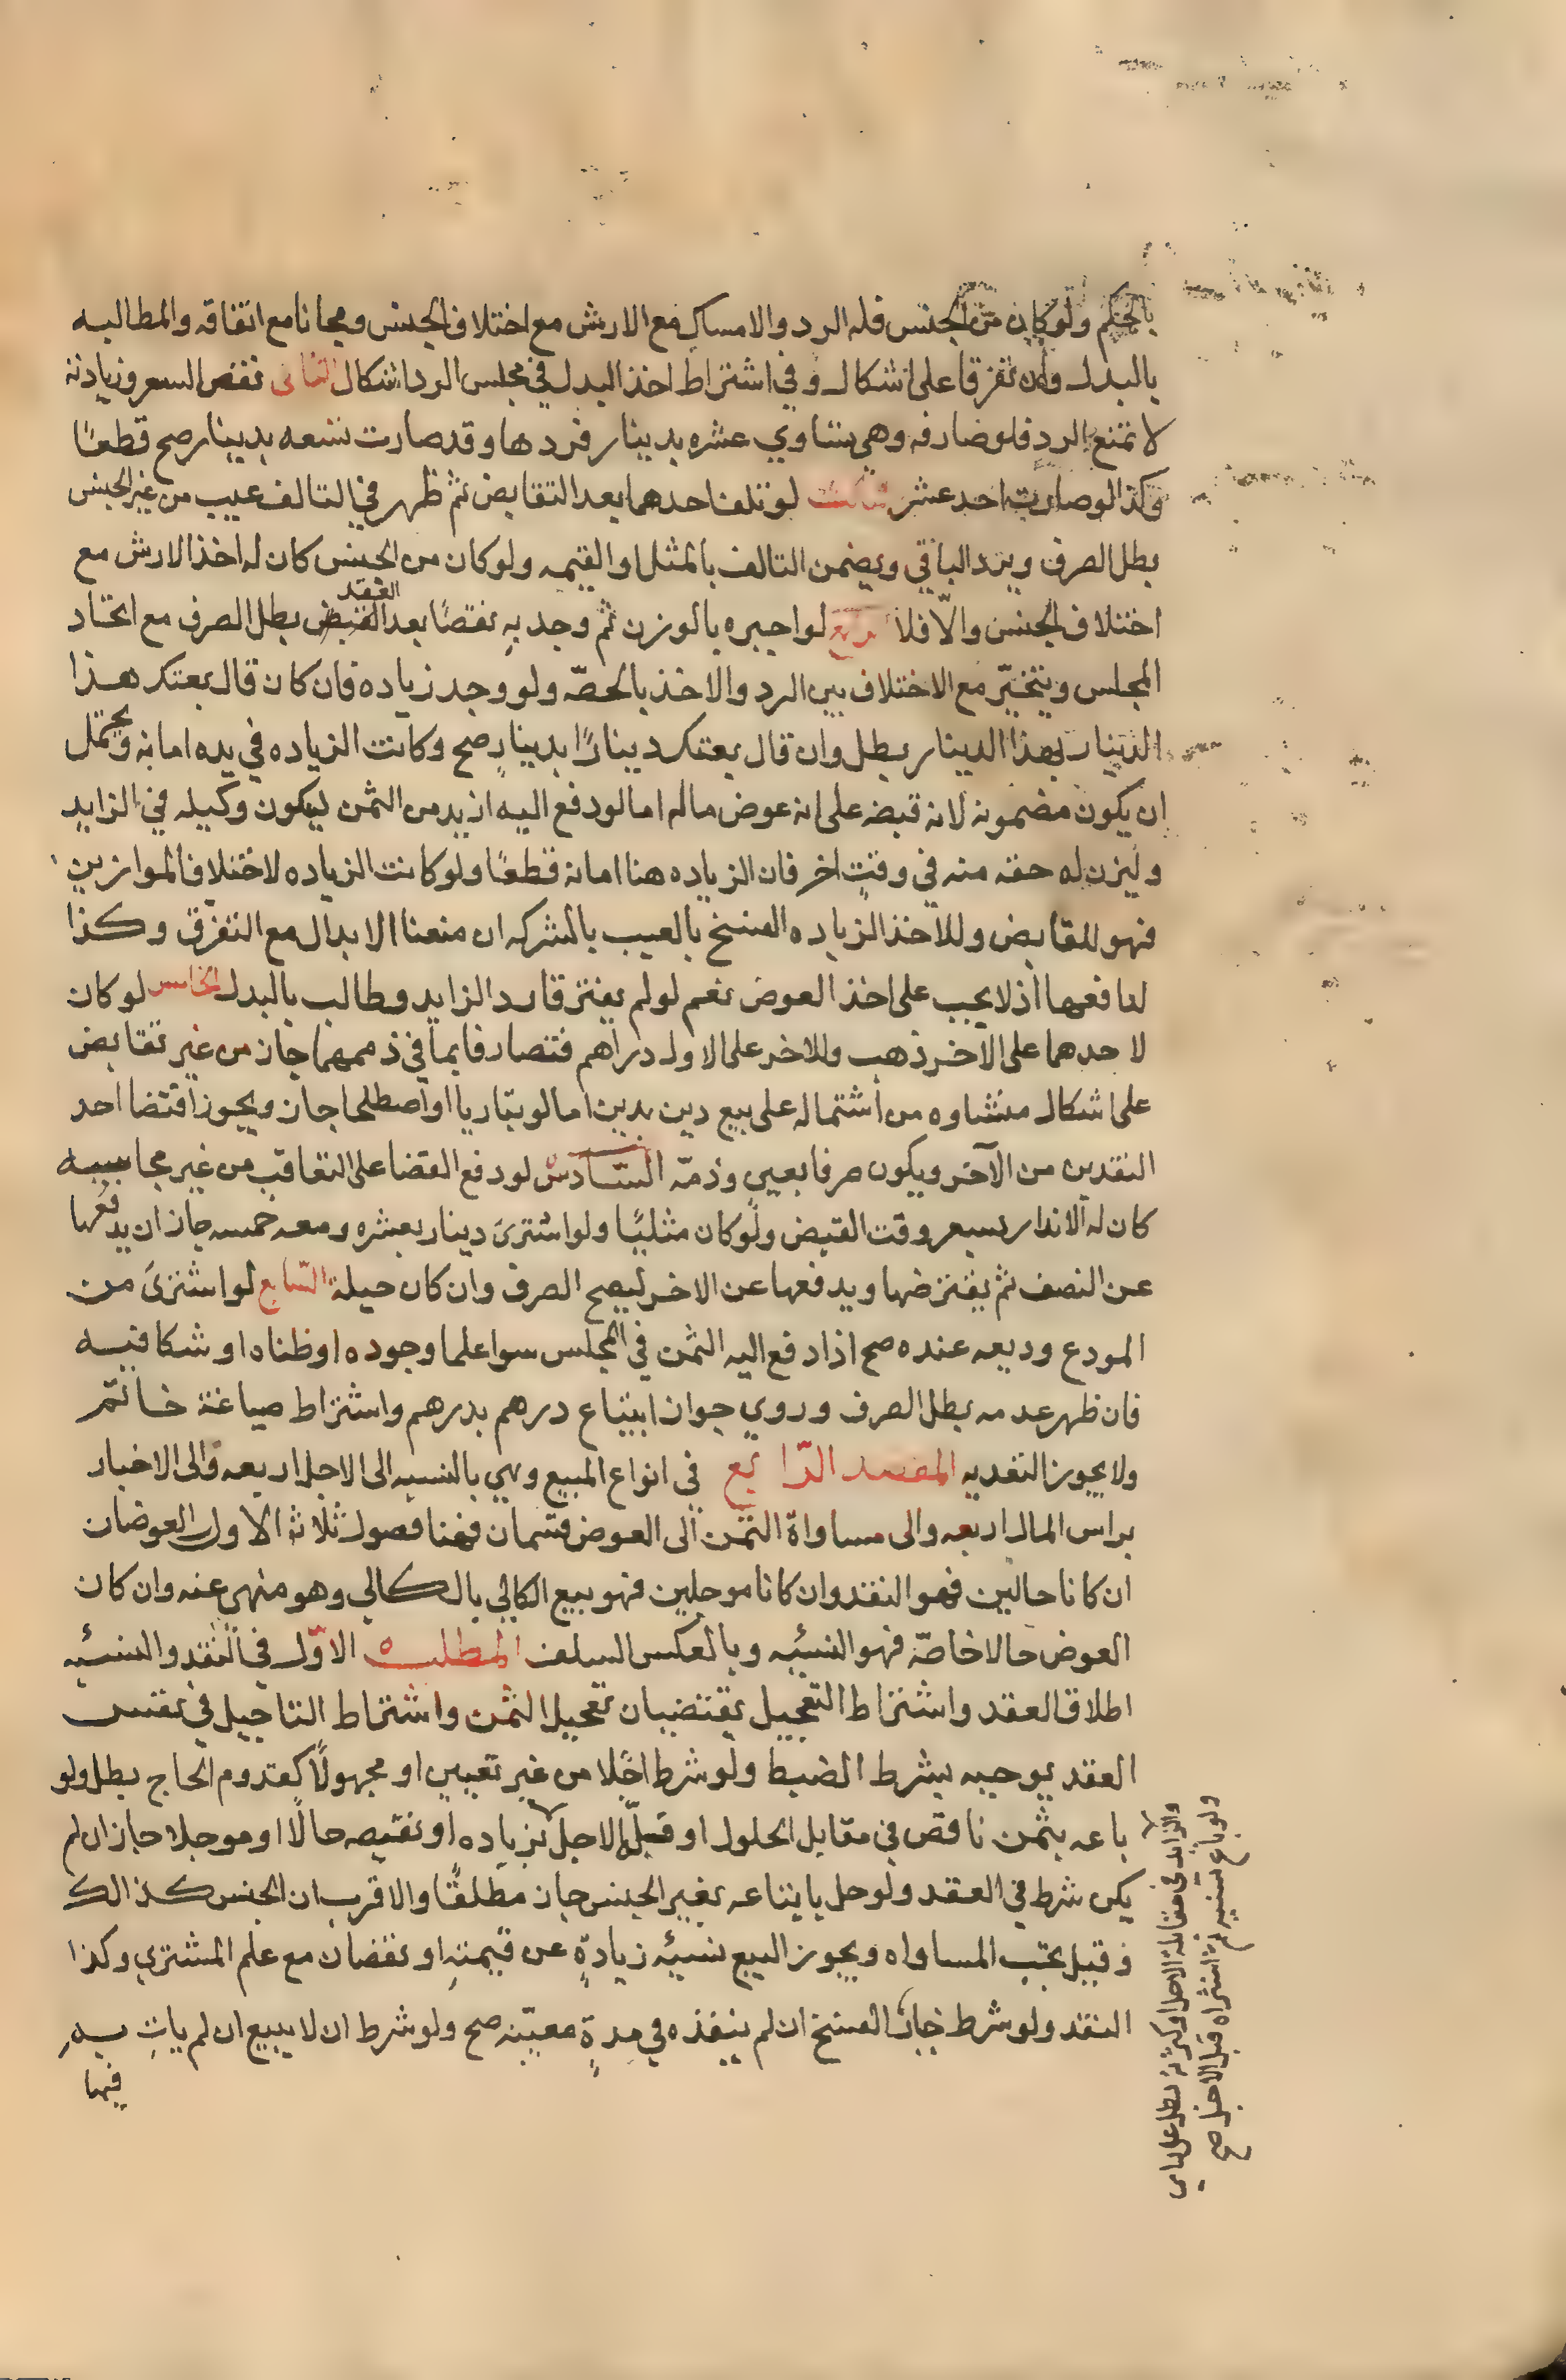 بالحكم ولو كان من الجنس فله الرد والامساك مع الارش مع اختلاف الجنس ومجانا مع اتفاقه والمطالبه
بالبدل وان تفرقا على اشكال وفي اشتراط اخذ البدل في مجلس الرد اشكال الثاني نقص السعر وزيادته
لا تمنع الرد فلو صارفه وهي تساوي عشره بدينار فردها وقد صارت تسعه بدينار صح قطعًا
وكذا لو صارت احد عشر الثالث لو تلف احدهما بعد التقابض ثم ظهر في التالف عيب من غير الجنس
بطل الصرف ويرد الباقي ويضمن التالف بالمثل او القيمه ولو كان من الجنس كان له اخذ الارش مع
اختلاف الجنس والّا فلا الرابع لو اخبره بالوزن ثم وجد به نقصًا بعد العقد بطل الصرف مع اتحاد
المجلس ويتخيّر مع الاختلاف بين الرد والاخذ بالحصّه ولو وجد زياده فان كان قال بعتك هذا
الدينار بهذا الدينار بطل وان قال بعتك دينارًا بدينارٍ صح وكانت الزياده في يده امانه ويحتمل
ان يكون مضمونه لانه قبضه على انه عوض ماله اما لو دفع اليه ازيد من الثمن ليكون وكيله في الزايد
وليزن له حقه منه في وقتٍ اخر فان الزياده هنا امانه قطعًا ولو كانت الزياده لاختلاف الموازين
فهو للقابض وللاخذ الزياده الفسخ بالعيب بالشركه ان منعنا الابدال مع التفرق وكذا
لدافعها اذ لا يجب على اخذ العوض نعم لو لم يفترقا رد الزايد وطالب بالبدل الخامس لو كان
لاحدهما على الاخر ذهب وللاخر على الاول دراهم فتصارفا بما في ذممهما جاز من غير تقابض
على اشكال منشاوه من اشتماله على بيع دين بدين اما لو تباريا او اصطلحا جاز ويجوز اقتضا احد
النقدين من الآخر ويكون صرفا بعين وذمّه السّادس لو دفع القضا على التعاقب من غير محاسبه
كان له الاندار بسعر وقت القبض ولو كان مثليًا ولو اشترى دينار بعشره ومعه خمسه جاز ان يدفعها
عن النصف ثم يقترضها ويدفعها عن الاخر ليصح الصرف وان كان حيلة السّابع لو اشترى من
المودع وديعه عنده صح اذا دفع اليه الثمن في المجلس سوا علما وجوده او ظناه او شكا فيه
فان ظهر عدمه بطل الصرف وروي جواز ابتياع درهم بدرهم واشتراط صياغة خاتم
ولا يجوز التعديه المقصد الرّابع في انواع المبيع وهي بالنسبه الى الاجل اربعه والى الاخبار
براس المال اربعه والى مساواة الثمن الى العوض قسمان فهنا فصول ثلاثة الاول العوضان
ان كانا حالين فهو النقد وان كانا موجلين فهو بيع الكالي بالكالي وهو منهي عنه وان كان
العوض حالا خاصّه فهو النسئيه وبالعكس السلف المطلب الاوّل في النقد والنسئيه
اطلاق العقد واشتراط التعجيل يقتضيان تعجيل الثمن واشتراط التاجيل في نفس
العقد يوجبه بشرط الضبط ولو شرط اجلا من غير تعيين او مجهولًا كقدوم الحاج بطل ولو
باعه بثمن ناقص في مقابل الحلول او قبل الاجل بزياده او نقيصه حالًا او موجلا جاز ان لم
يكن شرط في العقد ولو حل يابتاعه بغير الجنس جاز مطلقًا والاقرب ان الجنس كذالك
وقيل يجب المساواه ويجوز البيع نسئيه زيادةٍ عن قيمته او نقصان مع علم المشتري وكذا
النقد ولو شرط خيار الفسخ ان لم ينقده في مدةٍ معيّنه صح ولو شرط ان لا يبيع ان لم يات به
فيها
والزايد في مقابلة الاجل او كثرته بطل على راي
ولو باع نسئيه ثم اشتراه قبل الاجل صح